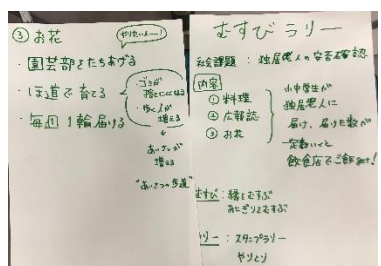 ③ お花
やりたい人ー！
・園芸部をたちあげる
・ほ道で育てる
・ゴミが
捨てにくくなる
・歩く人が
増える
・毎週1輪届ける
あいさつが
増える
"あいさつの歩道"
むすびラリー
社会課題：独居老人の安否確認
内容
① 料理
② 広報誌
③ お花
小中学生が
独居老人に
届け、届けた数が
一定数いくと
飲食店でご飯get!
むすび：縁をむすぶ
おにぎりをむすぶ
ラリー：スタンプラリー
やりとり